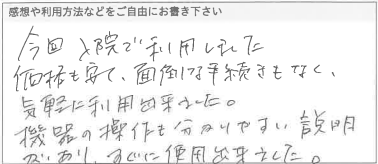 感想や利用方法などをご自由にお書き下さい
今回入院で利用しました
価格も安て、面倒な手続きもなく、
気軽に利用出来ました。
機器の操作も分かりやすい説明
があり、すぐに使用出来ました。